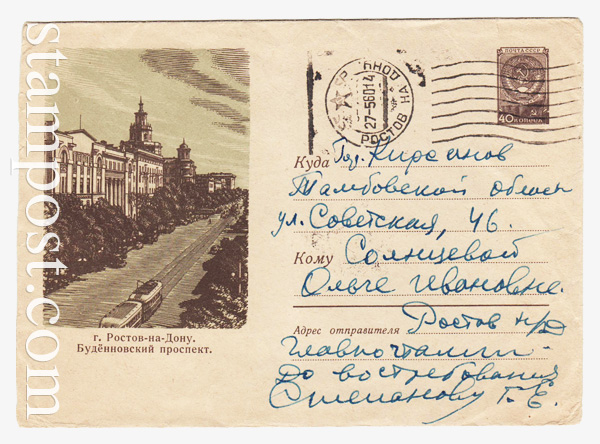 stampost.com
ПОЧТА СССР
40 КОПЕЕК
РОСТОВ НА ДОНУ
27-56014
Куда Гор. Кирсанов
Тамбовской област
ул. Советская, 46.
Кому Солнцевой
Ольге Ивановне.
Адрес отправителя Ростов н/Д
Главпочтамт
До востребования
Степанову Г. Е.
г. Ростов-на-Дону.
Будённовский проспект.